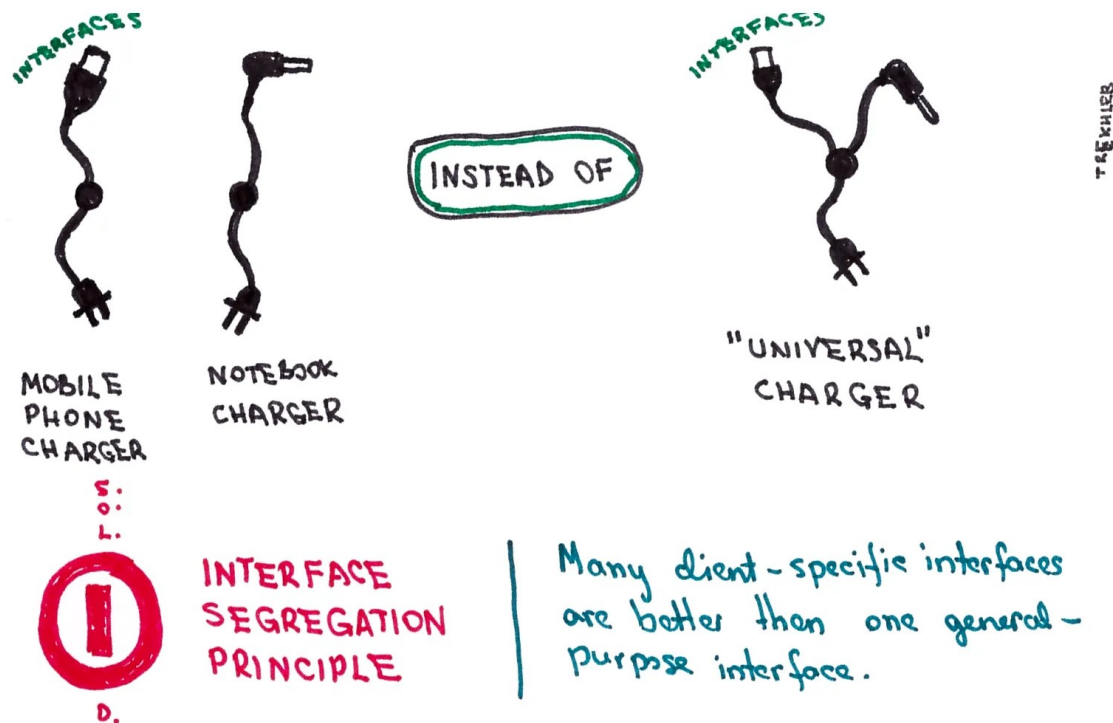 INTERFACES
INTERFACES
TREKHLEB
INSTEAD OF
MOBILE
PHONE
CHARGER
NOTEBOOK
CHARGER
"UNIVERSAL"
CHARGER
S.
O.
L.
I
D.
INTERFACE
SEGREGATION
PRINCIPLE
Many client-specific interfaces
are better then one general-
purpose interface.